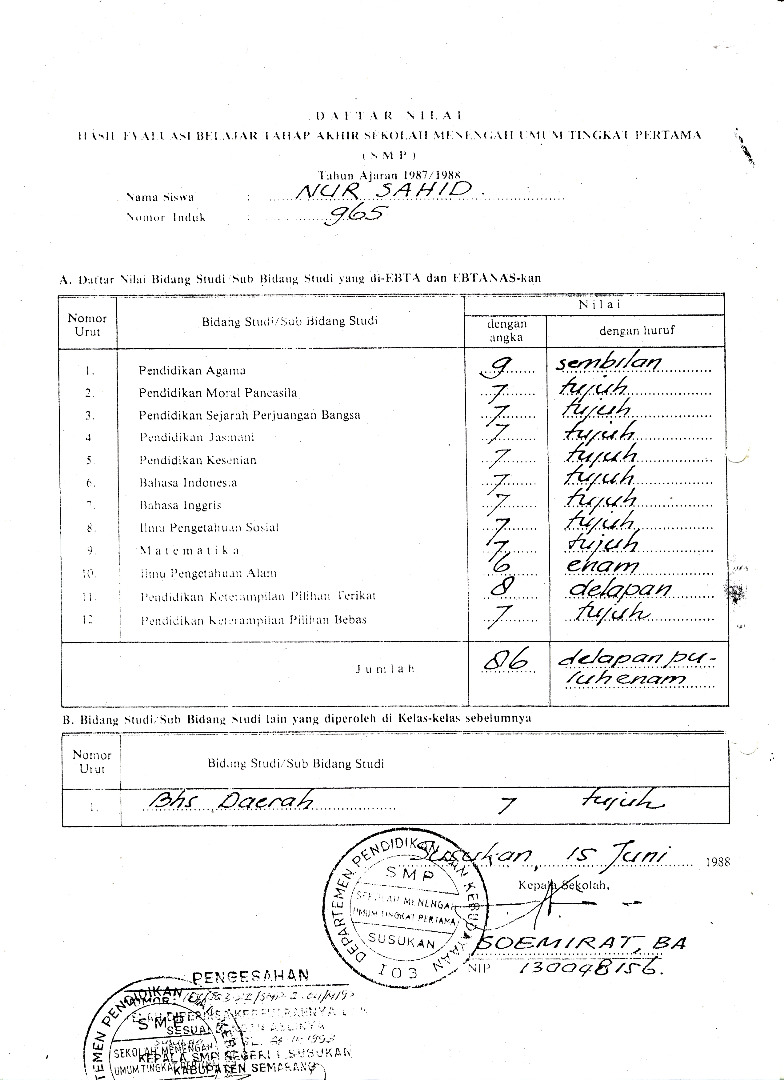 DAFTAR NILAI
HASIL EVALUASI BELAJAR TAHAP AKHIR SEKOLAH MENENGAH UMUM TINGKAT PERTAMA
(SMP)
Tahun Ajaran 1987/1988
Nama Siswa : NUR SAHID
Nomor Induk : 965
A. Daftar Nilai Bidang Studi/Sub Bidang Studi yang di-EBTA dan EBTANAS-kan
Nomor Urut Bidang Studi/Sub Bidang Studi Nilai
dengan angka dengan huruf
1. Pendidikan Agama 9 sembilan
2. Pendidikan Moral Pancasila 7 tujuh
3. Pendidikan Sejarah Perjuangan Bangsa 7 tujuh
4. Pendidikan Jasmani 7 tujuh
5. Pendidikan Kesenian 7 tujuh
6. Bahasa Indonesia 7 tujuh
7. Bahasa Inggris 7 tujuh
8. Ilmu Pengetahuan Sosial 7 tujuh
9. Matematika 7 tujuh
10. Ilmu Pengetahuan Alam 6 enam
11. Pendidikan Keterampilan Pilihan Terikat 8 delapan
12. Pendidikan Keterampilan Pilihan Bebas 7 tujuh
Jumlah 86 delapan pu-
luh enam
B. Bidang Studi/Sub Bidang Studi lain yang diperoleh di Kelas-kelas sebelumnya
Nomor Urut Bidang Studi/Sub Bidang Studi
1. Bhs Daerah 7 tujuh
Susukan, 15 Juni 1988
Kepala Sekolah,
DEPARTEMEN PENDIDIKAN DAN KEBUDAYAAN
SMP
SEKOLAH MENENGAH
UMUM TINGKAT PERTAMA
SUSUKAN
103
SOEMIRAT, BA
NIP 130048156.
PENGESAHAN
NOMOR:
SESUAI
KEPALA SMP NEGERI 1 SUSUKAN
KABUPATEN SEMARANG
SMP
SEKOLAH MENENGAH
UMUM TINGKAT